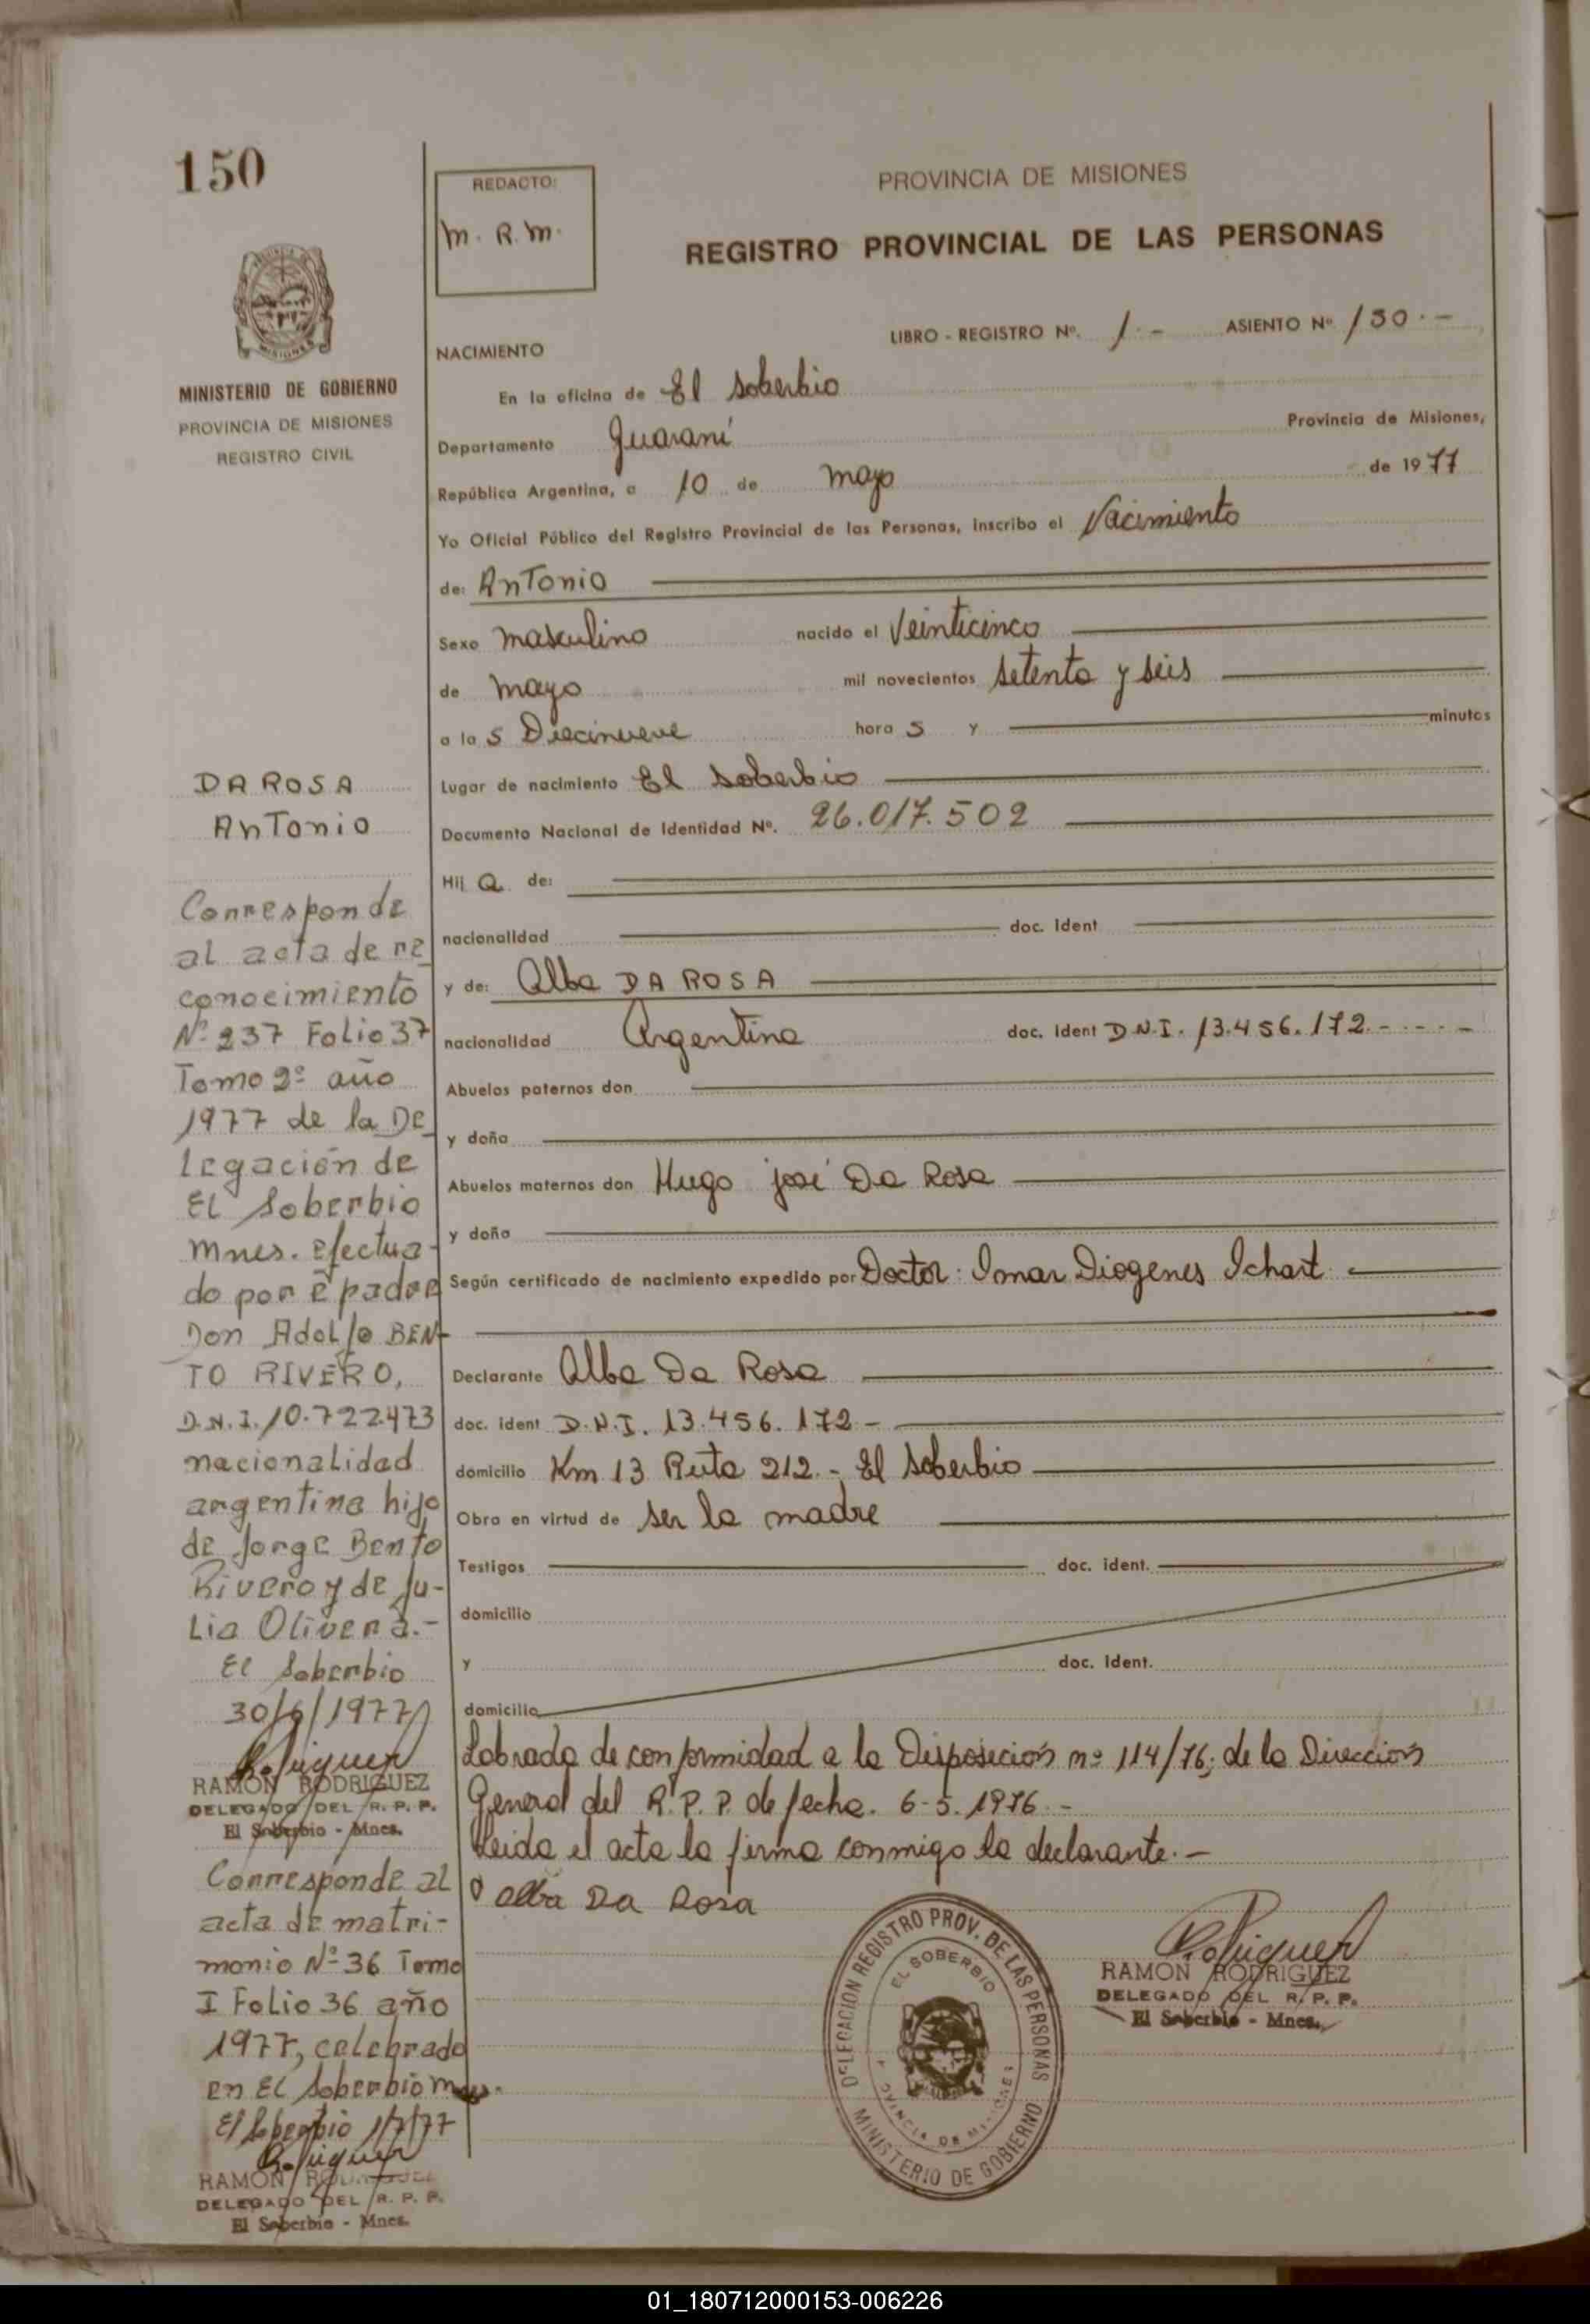 150
REDACTO:
M. R. M.
PROVINCIA DE MISIONES
REGISTRO PROVINCIAL DE LAS PERSONAS
MINISTERIO DE GOBIERNO
PROVINCIA DE MISIONES
REGISTRO CIVIL
LIBRO - REGISTRO Nº. 1.- ASIENTO Nº 150.-
NACIMIENTO
En la oficina de El Soberbio
Departamento Guaraní Provincia de Misiones,
República Argentina, a 10 de mayo de 1977
Yo Oficial Público del Registro Provincial de las Personas, inscribo el Nacimiento
de: Antonio
Sexo masculino nacido el Veinticinco
de mayo mil novecientos setenta y seis
a la s Diecinueve hora s y minutos
Lugar de nacimiento El Soberbio
Documento Nacional de Identidad Nº. 26.017.502
Hij o de:
nacionalidad doc. ident
y de: Alba DA ROSA
nacionalidad Argentina doc. ident D.N.I. 13.456.172.-
Abuelos paternos don
y doña
Abuelos maternos don Hugo José Da Rosa
y doña
Según certificado de nacimiento expedido por Doctor: Imar Diogenes Ichart
Declarante Alba Da Rosa
doc. ident D.N.I. 13.456.172-
domicilio Km 13 Ruta 212.- El Soberbio
Obra en virtud de ser la madre
Testigos doc. ident.
domicilio
y doc. ident.
domicilio
Labrada de conformidad a la Disposición nº 114/76; de la Dirección
General del R.P.P. de fecha. 6-5-1976.-
Leida el acta la firma conmigo la declarante.-
Alba Da Rosa
DELEGACION REGISTRO PROV. DE LAS PERSONAS
EL SOBERBIO
PROVINCIA DE MISIONES
MINISTERIO DE GOBIERNO
RAMON RODRIGUEZ
DELEGADO DEL R. P. P.
El Soberbio - Mnes.
DA ROSA
Antonio
Corresponde
al acta de re
conocimiento
Nº 237 Folio 37
Tomo 2º año
1977 de la De
legación de
El Soberbio
Mnes. efectua-
do por e padre
Don Adolfo BEN-
TO RIVERO,
D.N.I. 10.722.473
nacionalidad
argentina hijo
de Jorge Bento
Rivero y de Ju-
lia Olivera.-
El Soberbio
30/6/1977
RAMON RODRIGUEZ
DELEGADO DEL R. P. P.
El Soberbio - Mnes.
Corresponde al
acta de matri-
monio Nº 36 Tomo
I Folio 36 año
1977, celebrado
en El Soberbio Mnes.
El Soberbio 1/7/77
RAMON RODRIGUEZ
DELEGADO DEL R. P. P.
El Soberbio - Mnes.
01_180712000153-006226